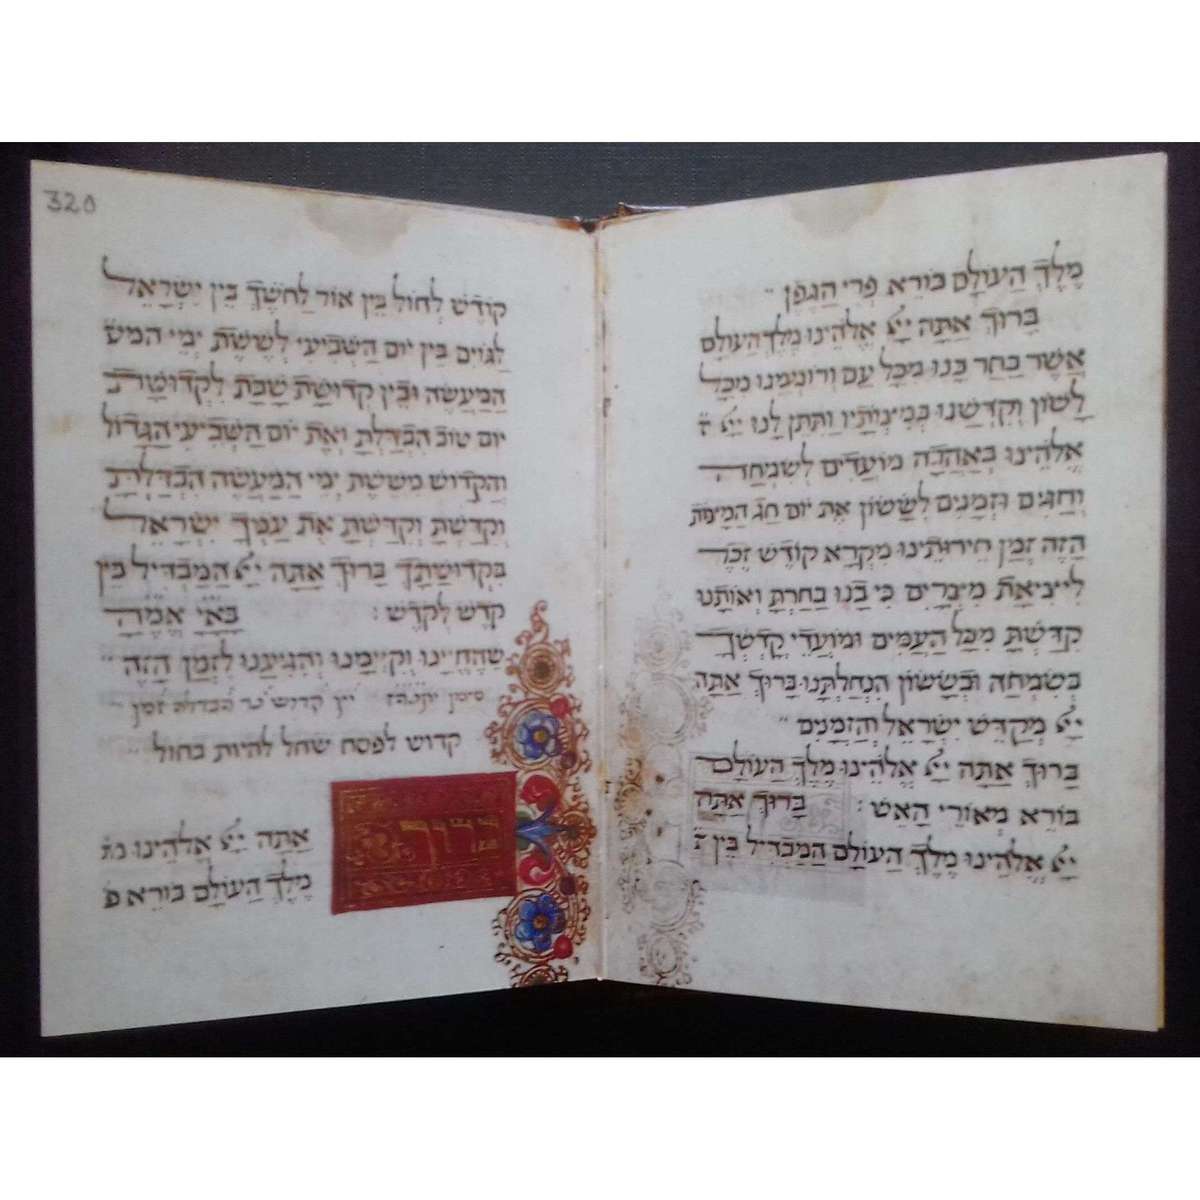 מֶלֶךְ הָעוֹלָם בּוֹרֵא פְּרִי הַגֶּפֶן
בָּרוּךְ אַתָּה יְיָ אֱלֹהֵינוּ מֶלֶךְ הָעוֹלָם
אֲשֶׁר בָּחַר בָּנוּ מִכָּל עַם וְרוֹמְמָנוּ מִכָּל
לָשׁוֹן וְקִדְּשָׁנוּ בְּמִצְוֹתָיו וַתִּתֶּן לָנוּ יְיָ
אֱלֹהֵינוּ בְּאַהֲבָה מוֹעֲדִים לְשִׂמְחָה
וְחַגִּים וּזְמַנִּים לְשָׂשׂוֹן אֶת יוֹם חַג הַמַּצּוֹת
הַזֶּה זְמַן חֵירוּתֵינוּ מִקְרָא קוֹדֶשׁ זֵכֶר
לִיצִיאַת מִצְרָיִם כִּי בָנוּ בָחַרְתָּ וְאוֹתָנוּ
קִדַּשְׁתָּ מִכָּל הָעַמִּים וּמוֹעֲדֵי קָדְשְׁךָ
בְּשִׂמְחָה וּבְשָׂשׂוֹן הִנְחַלְתָּנוּ בָּרוּךְ אַתָּה
יְיָ מְקַדֵּשׁ יִשְׂרָאֵל וְהַזְּמַנִּים
בָּרוּךְ אַתָּה יְיָ אֱלֹהֵינוּ מֶלֶךְ הָעוֹלָם
בּוֹרֵא מְאוֹרֵי הָאֵשׁ : בָּרוּךְ אַתָּה
יְיָ אֱלֹהֵינוּ מֶלֶךְ הָעוֹלָם הַמַּבְדִּיל בֵּין
320
קוֹדֶשׁ לְחוֹל בֵּין אוֹר לַחֹשֶׁךְ בֵּין יִשְׂרָאֵל
לַגּוֹיִם בֵּין יוֹם הַשְּׁבִיעִי לְשֵׁשֶׁת יְמֵי המש
הַמַּעֲשֶׂה וּבֵין קְדוּשַּׁת שַׁבָּת לִקְדוּשַּׁת
יוֹם טוֹב הִבְדַּלְתָּ וְאֶת יוֹם הַשְּׁבִיעִי הַגָּדוֹל
וְהַקָּדוֹשׁ מִשֵּׁשֶׁת יְמֵי הַמַּעֲשֶׂה הִבְדַּלְתָּ
וְקִדַּשְׁתָּ וְקִדַּשְׁתָּ אֶת עַמְּךָ יִשְׂרָאֵל
בִּקְדוּשָּׁתָךְ בָּרוּךְ אַתָּה יְיָ הַמַּבְדִּיל בֵּין
קֹדֶשׁ לְקֹדֶשׁ : בָּאָיָ אֱמֶהָ
שֶׁהֶחֱיָינוּ וְקִיְּימָנוּ וְהִגִּיעָנוּ לַזְּמַן הַזֶּה
סימן יקנהז יין קדוש נר הבדלה זמן
קדוש לפסח שחל להיות בחול
בָּרוּךְ
אַתָּה יְיָ אֱלֹהֵינוּ
מֶלֶךְ הָעוֹלָם בּוֹרֵא פ